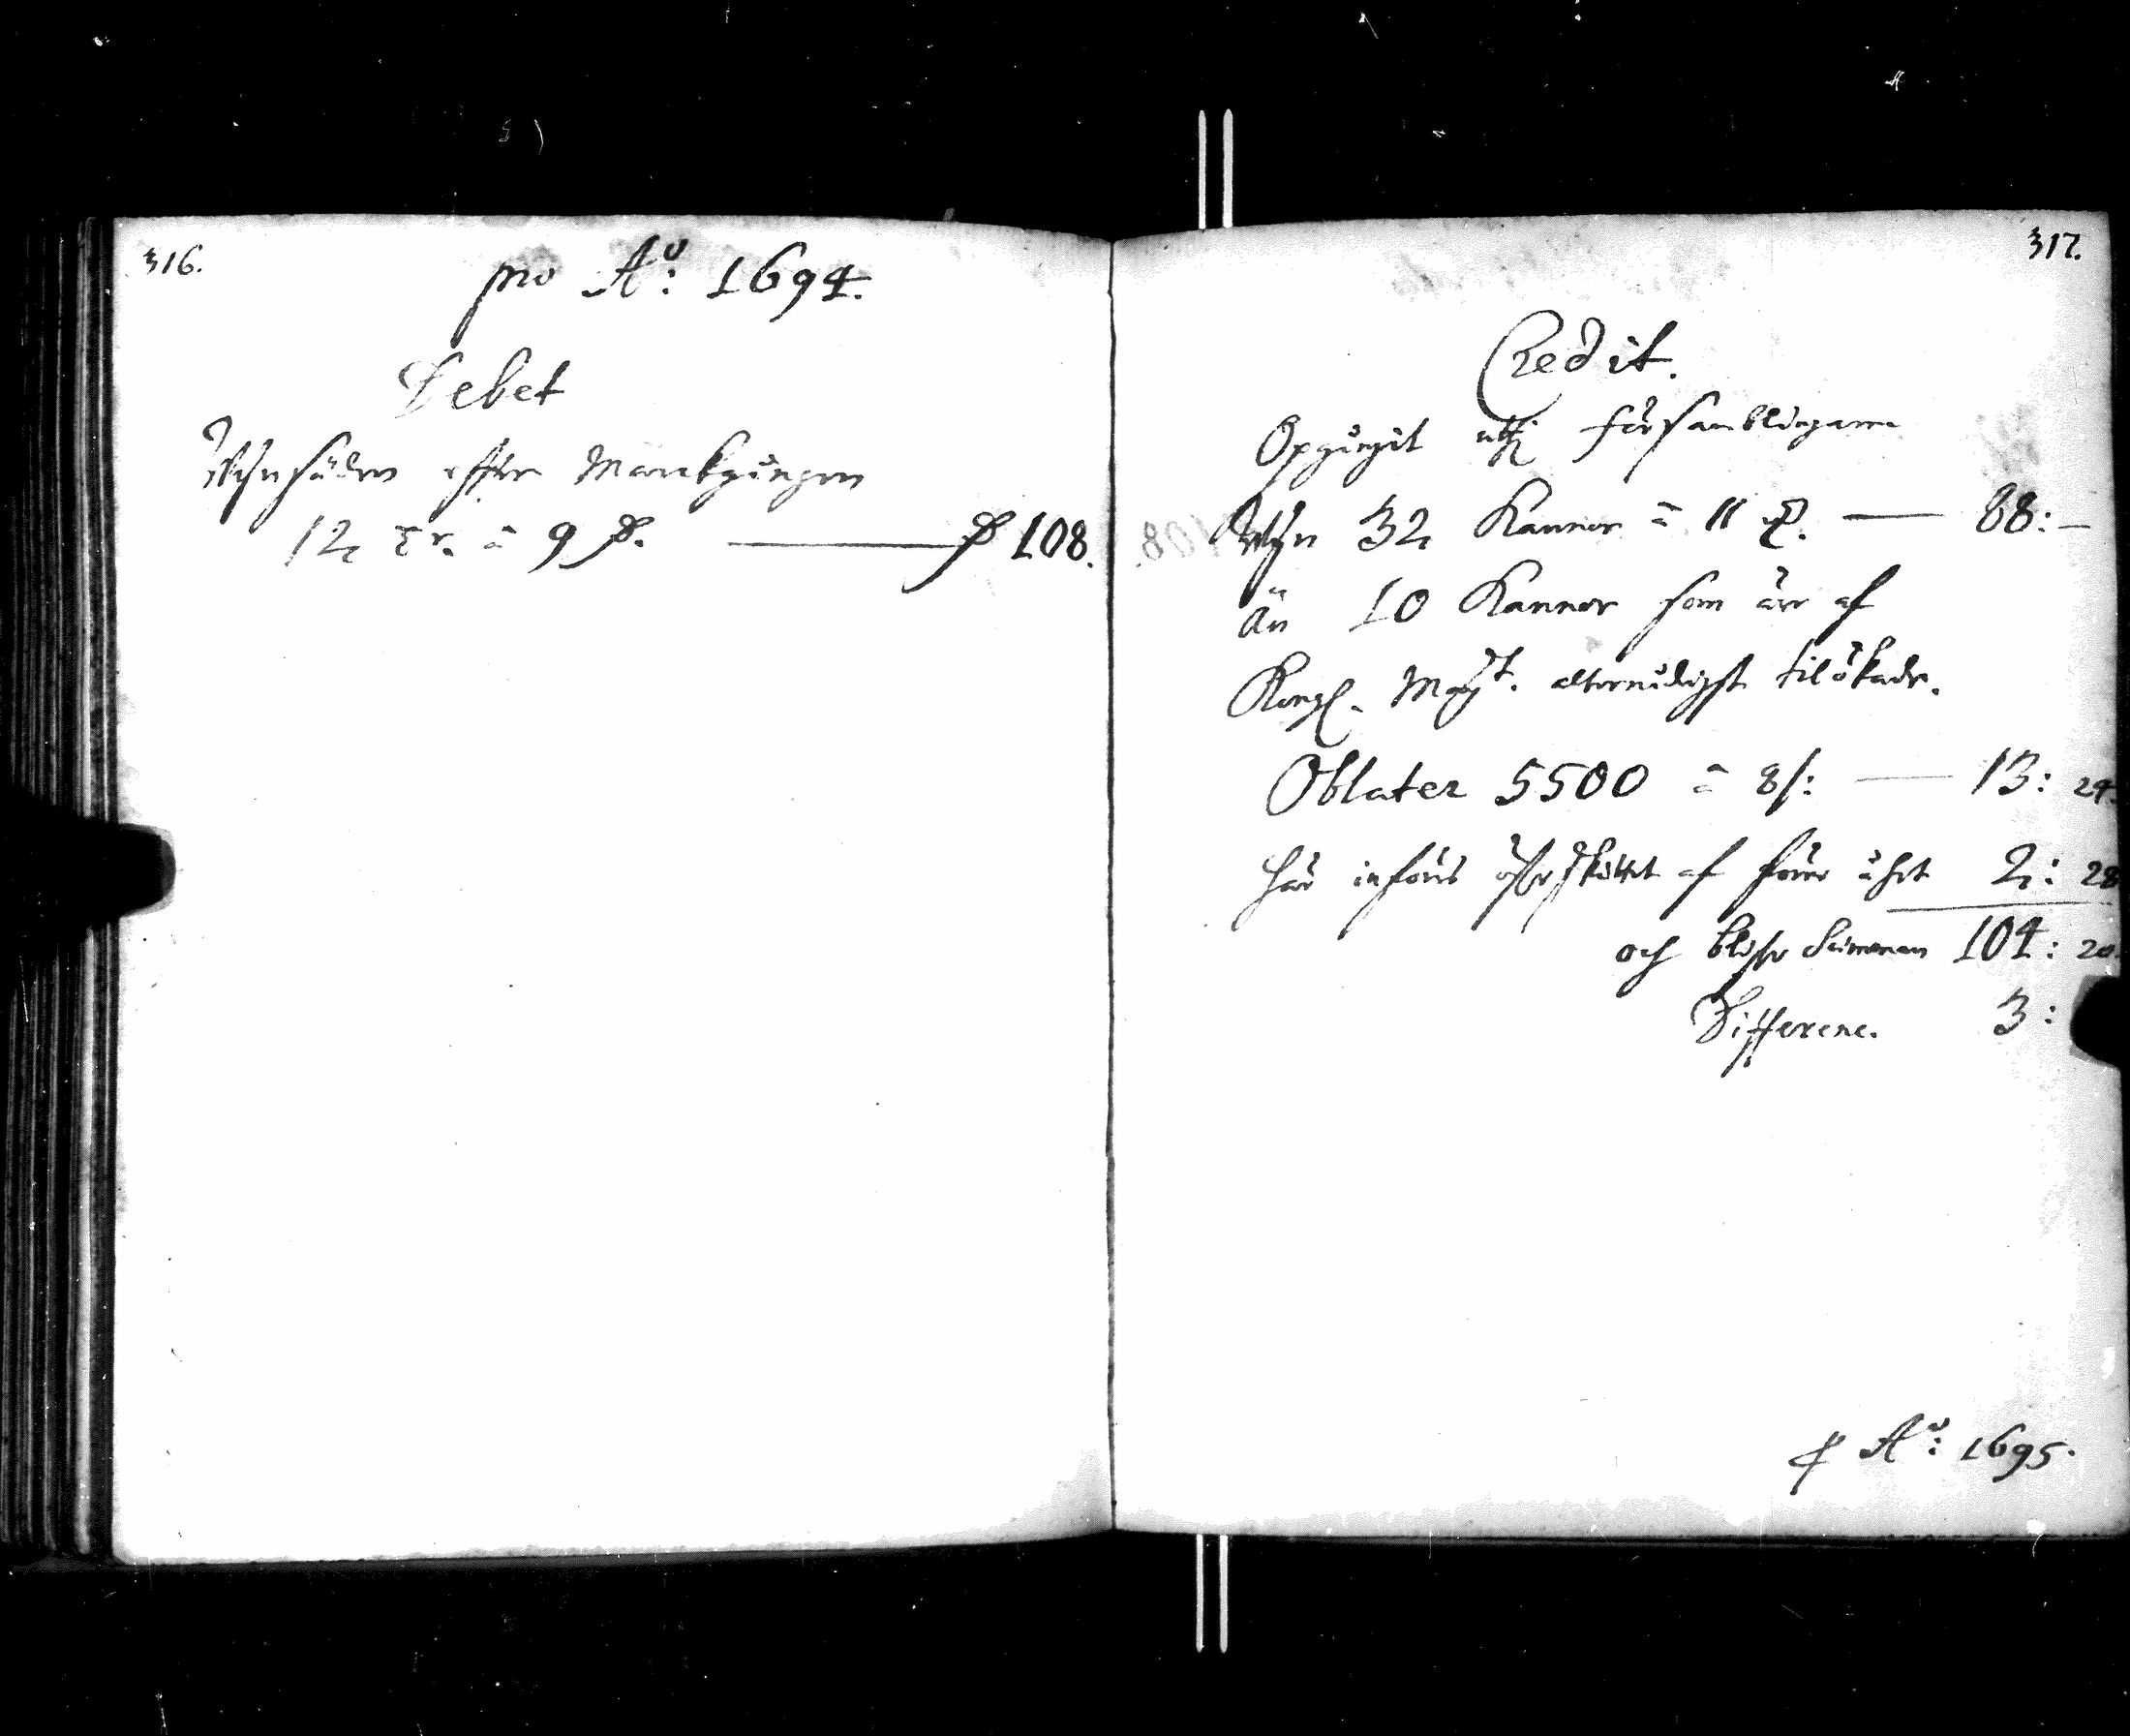 316.
pro A:o 1694.
Debet
Wijnsäden effter Marckgången
12 Tr. â 9 D. — D 108.
317.
Credit.
Opgångit uthj församblingarne
Wijn 32 Kannor â 11 — 88:—
än 10 Kannor som ärr af
Kongl. Maijt. allernådigst tilökade.
Oblater 5500 â 8/: — 13: 24.
här införes öfverskottet af förre åhret 2: 28
och blifver Summan 104: 20.
Differenc. 3:
A:o 1695.